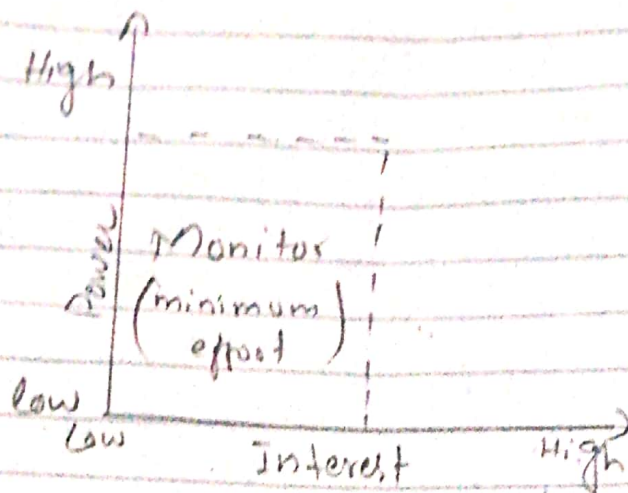 High
Power
Monitor
(minimum
effort)
Low
Low
Interest
High